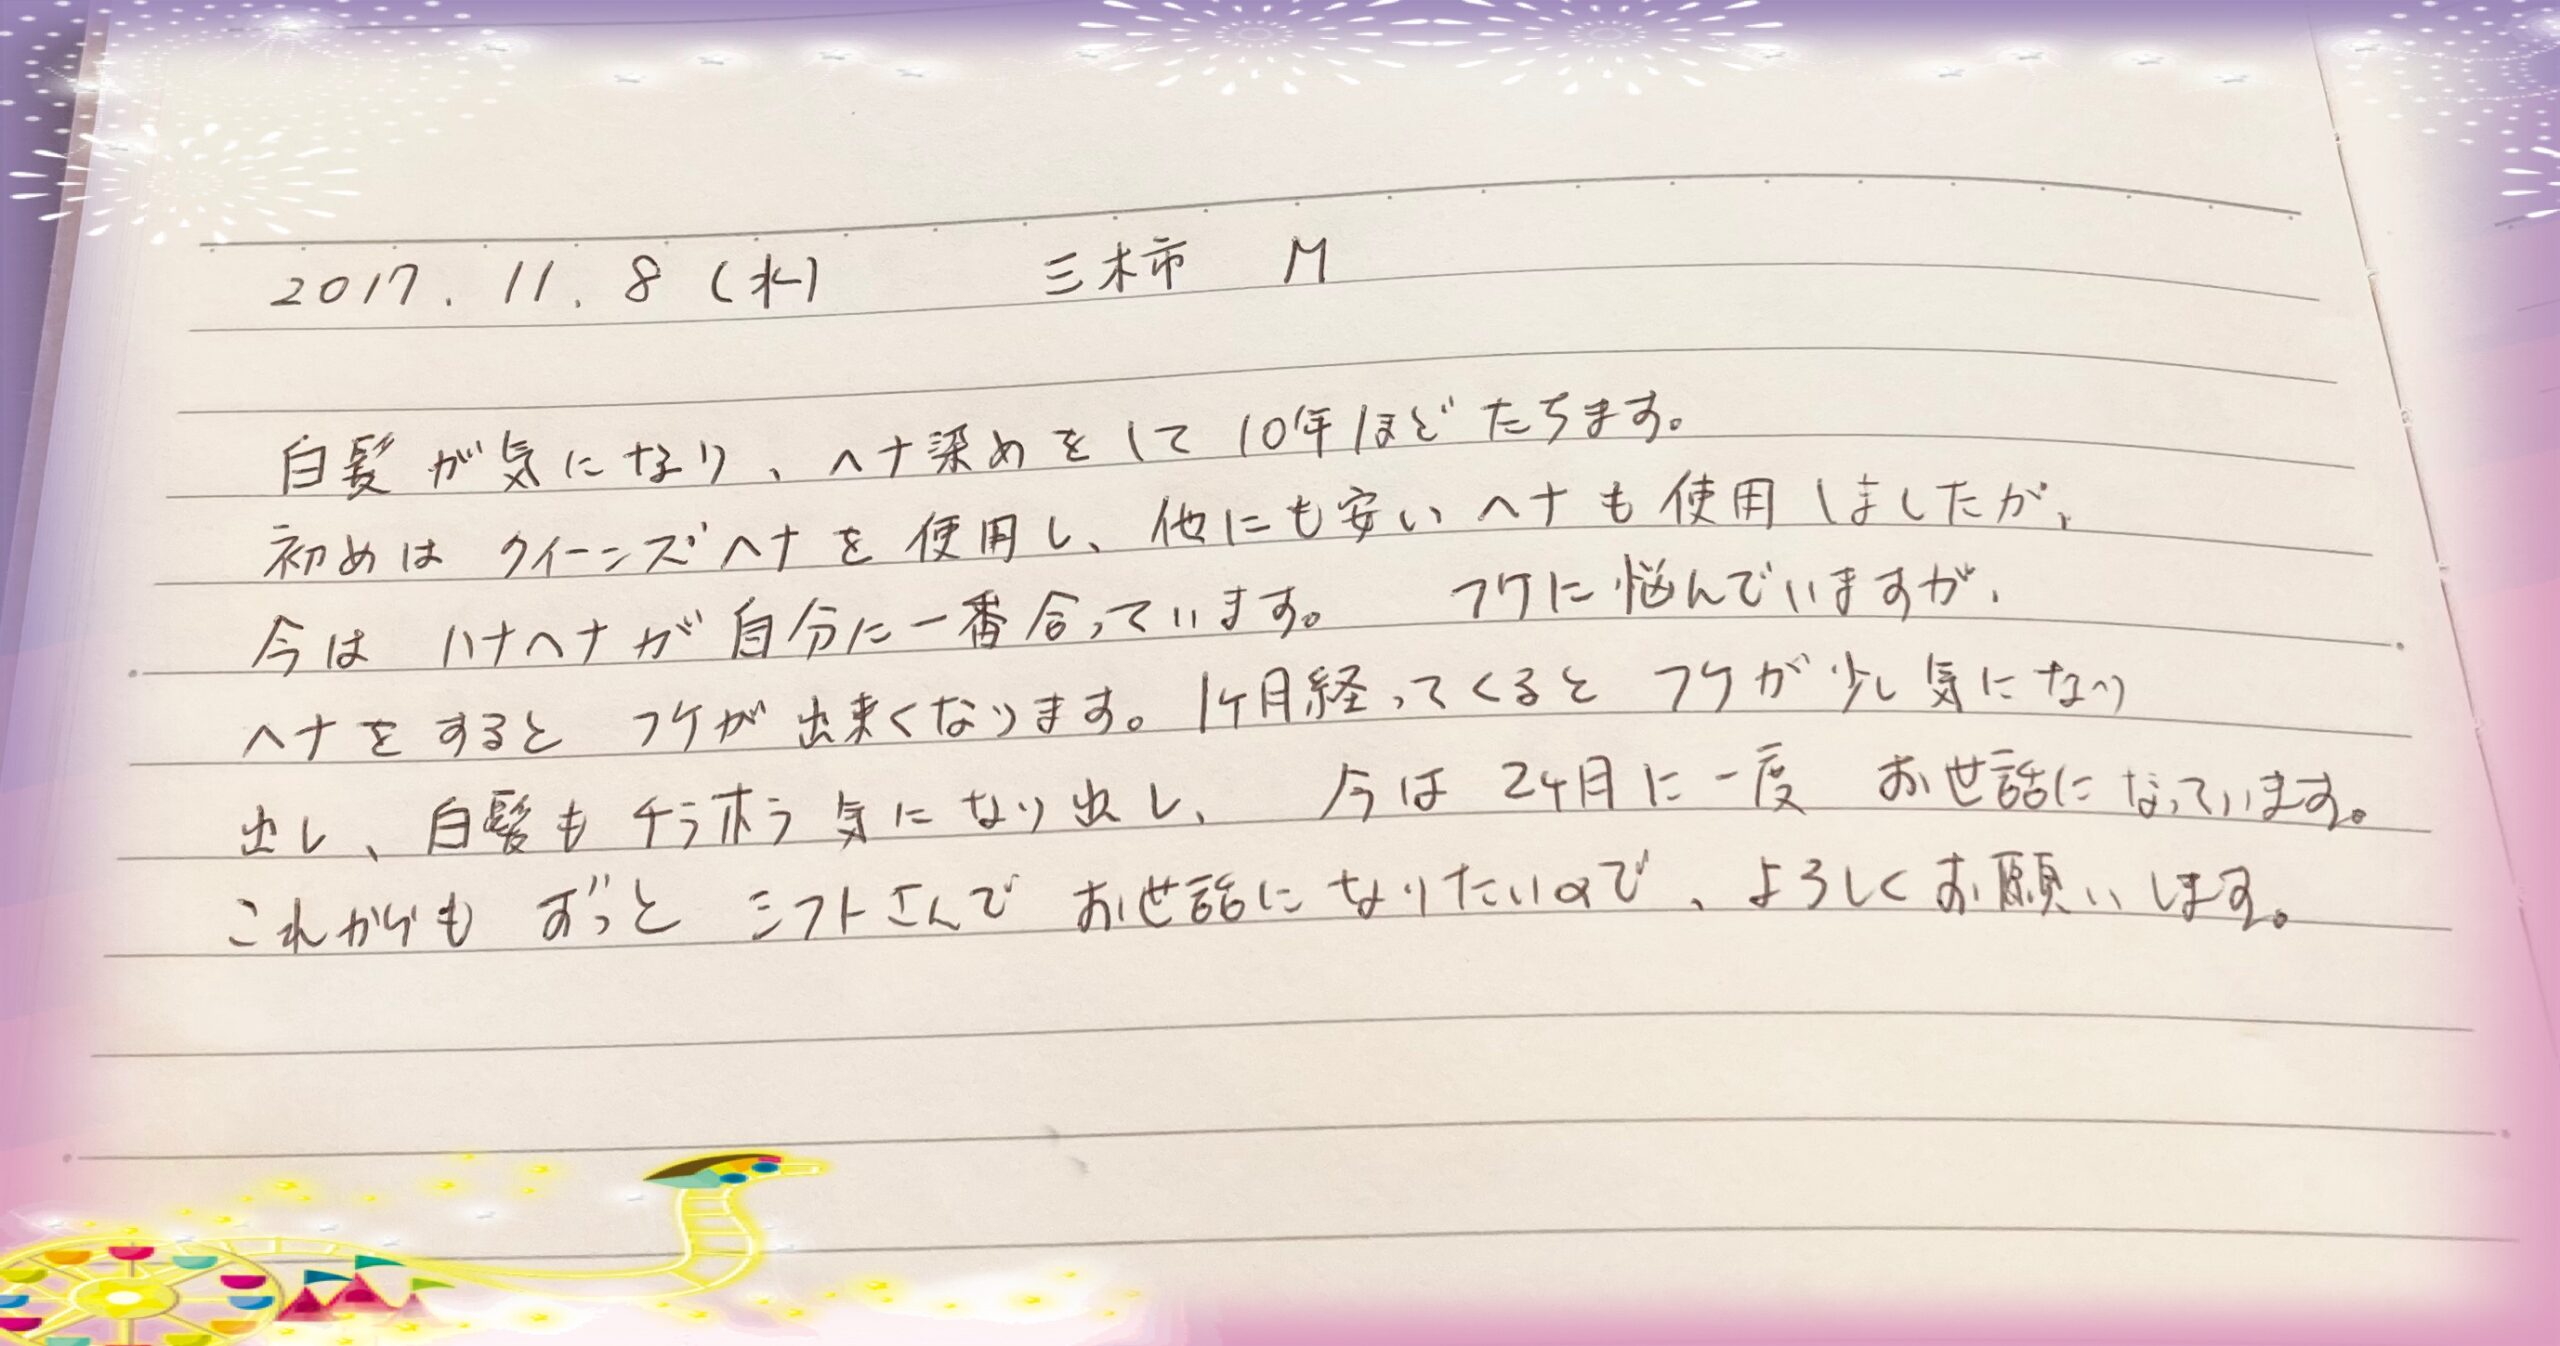 2017. 11. 8 (水) 三木市 M
白髪が気になり、ヘナ染めをして10年ほどたちます。
初めは クイーンズヘナを使用し、他にも安いヘナも使用しましたが、
今は ハナヘナが自分に一番合っています。 フケに悩んでいますが、
ヘナをすると フケが出来くなります。1ヶ月経ってくると フケが少し気になり
出し、白髪もチラホラ気になり出し、 今は 2ヶ月に一度 お世話になっています。
これからも ずっと シフトさんで お世話になりたいので、よろしくお願いします。